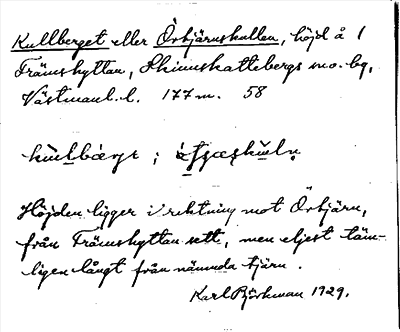 Kullberget eller Örtjärnskullen, höjd å 1
Främshyttan, Skinnskattebergs sn. o. bg,
Västmanl. l. 177 m. 58
Höjden ligger i riktning mot Örtjärn,
från Främshyttan sett, men eljest täm-
ligen långt från nämnda tjärn.
Karl Björkman 1929.